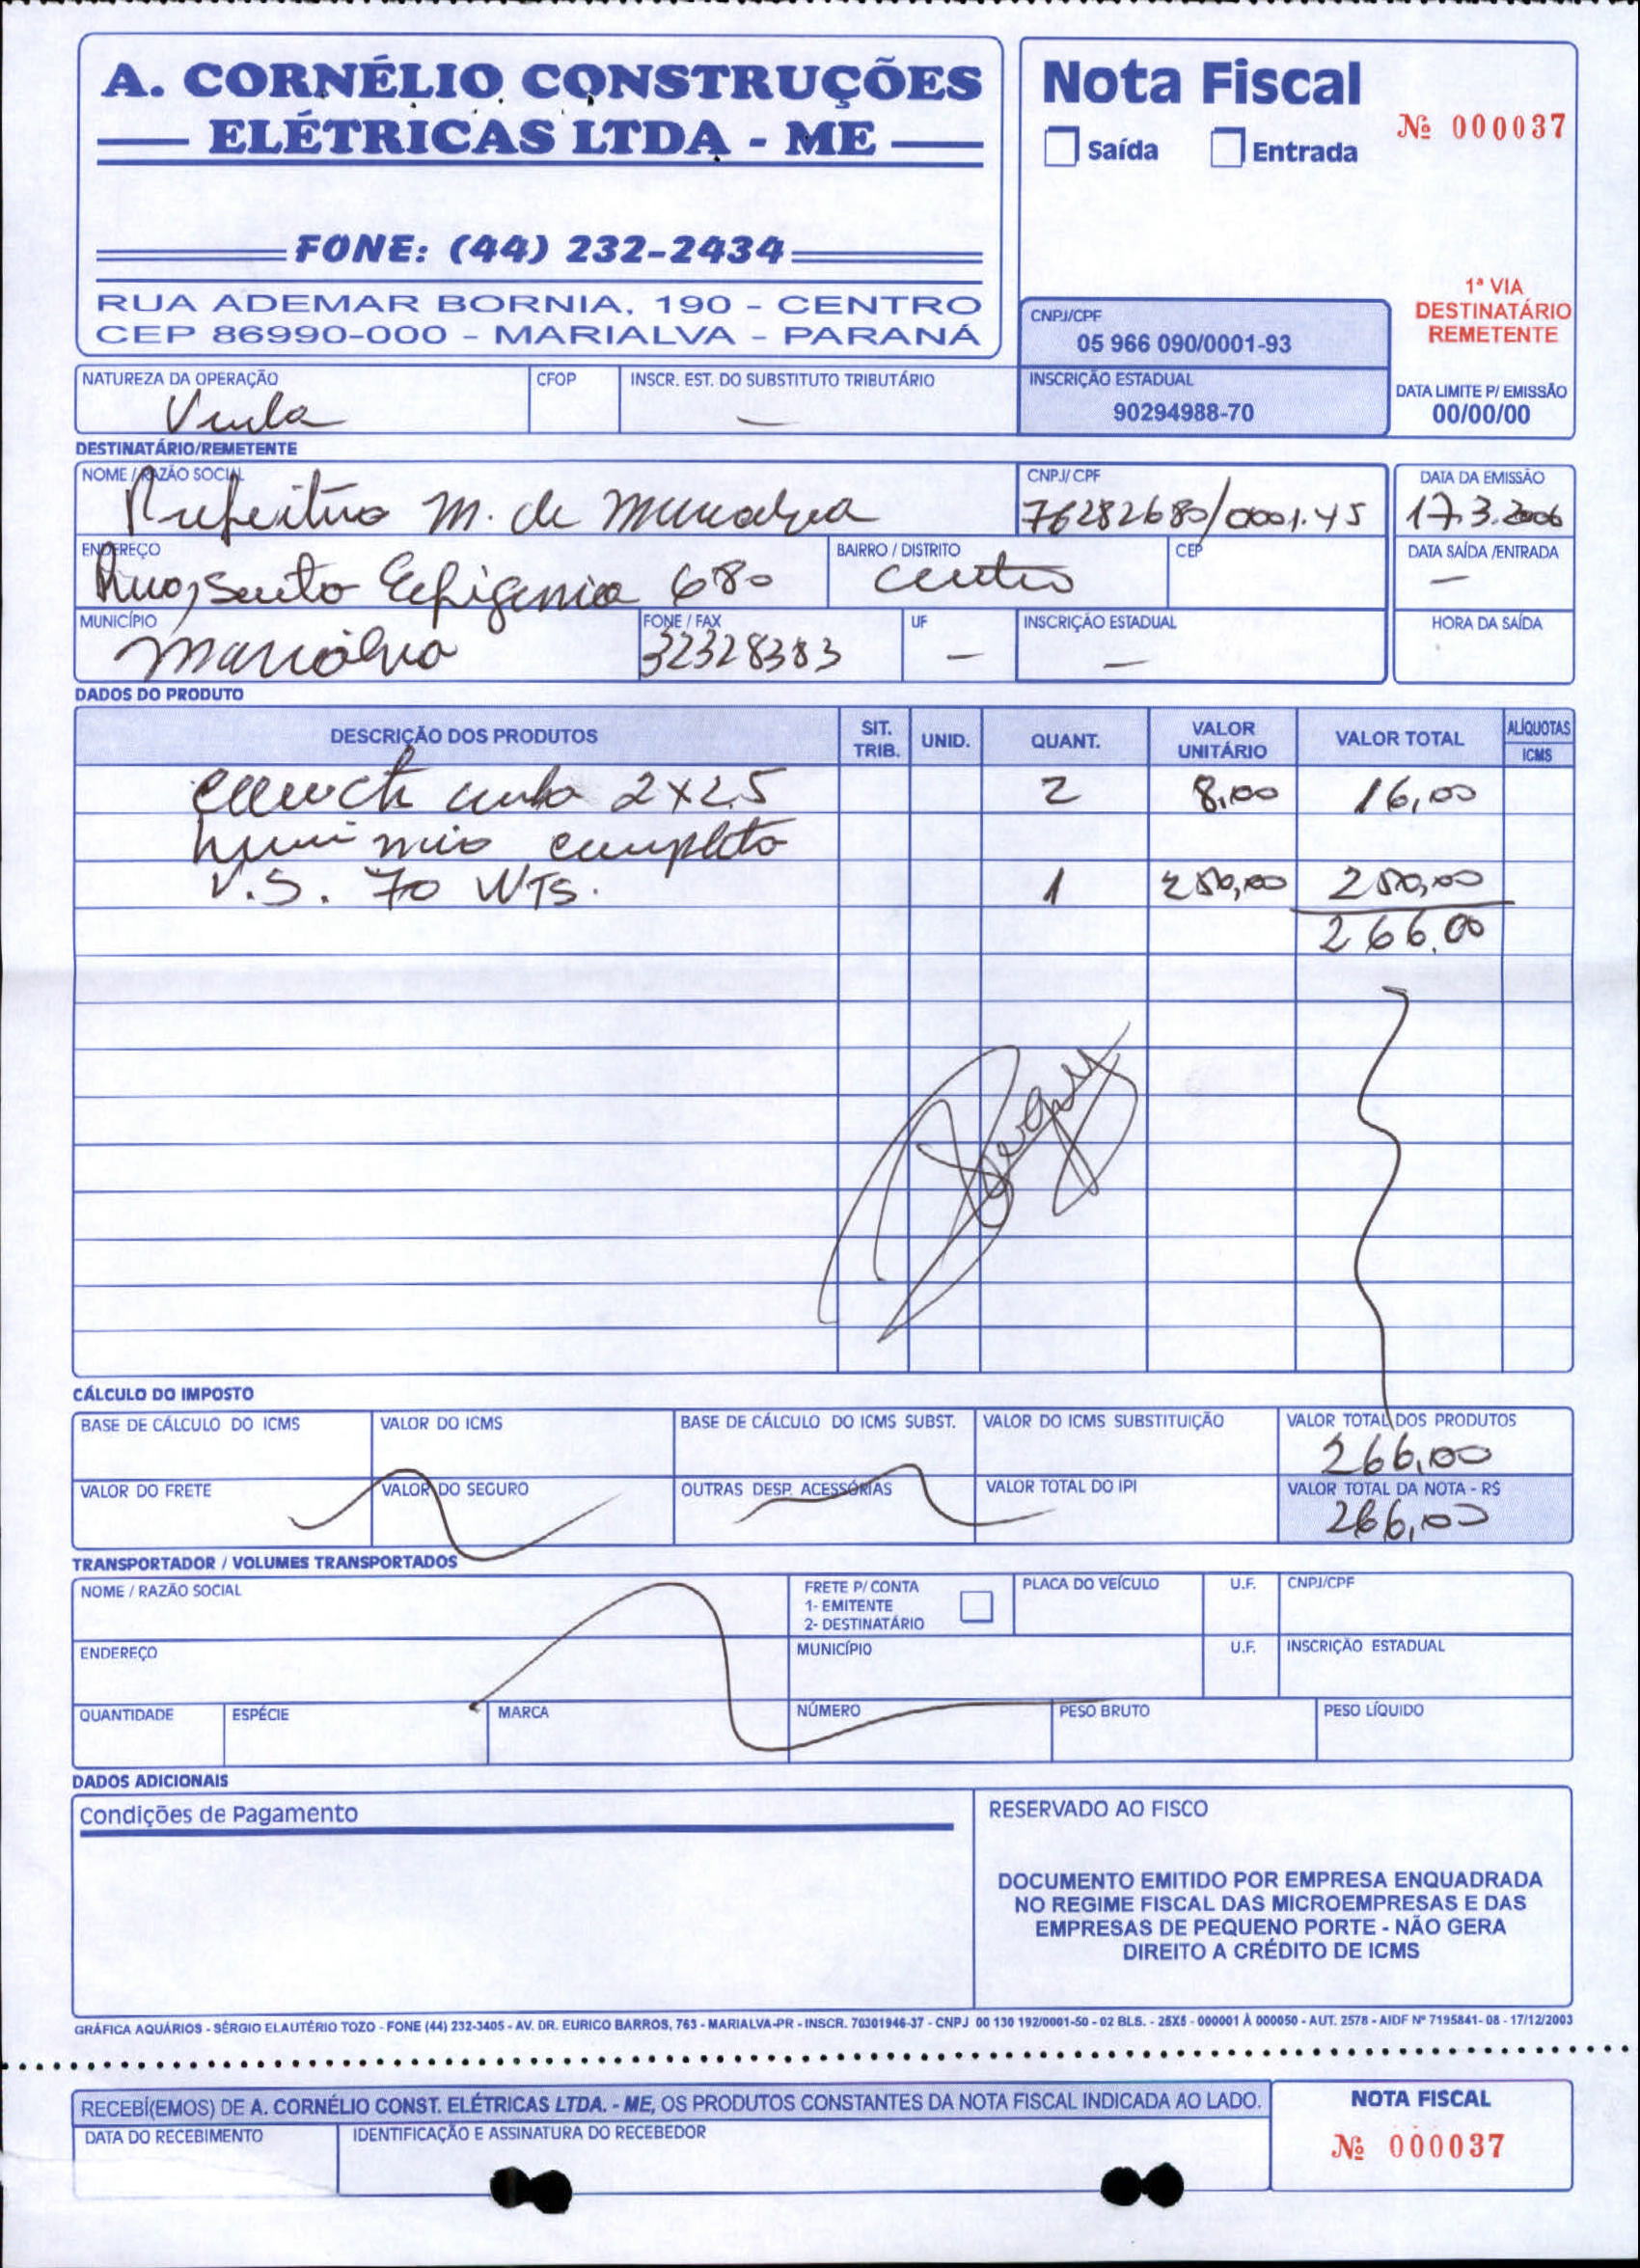 A. CORNÉLIO CONSTRUÇÕES
ELÉTRICAS LTDA - ME
FONE: (44) 232-2434
RUA ADEMAR BORNIA, 190 - CENTRO
CEP 86990-000 - MARIALVA - PARANÁ
Nota Fiscal
Saída Entrada
Nº 000037
1ª VIA
DESTINATÁRIO
REMETENTE
CNPJ/CPF
05 966 090/0001-93
INSCRIÇÃO ESTADUAL
90294988-70
DATA LIMITE P/ EMISSÃO
00/00/00
NATUREZA DA OPERAÇÃO
Venda
CFOP
INSCR. EST. DO SUBSTITUTO TRIBUTÁRIO
—
DESTINATÁRIO/REMETENTE
NOME / RAZÃO SOCIAL
Prefeitura M. de Marialva
CNPJ/ CPF
76282680/0001.45
DATA DA EMISSÃO
17.3.2006
ENDEREÇO
Rua, Santa Efigenia 680
BAIRRO / DISTRITO
centro
CEP
DATA SAÍDA /ENTRADA
—
MUNICÍPIO
Marialva
FONE / FAX
32328383
UF
—
INSCRIÇÃO ESTADUAL
—
HORA DA SAÍDA
DADOS DO PRODUTO
DESCRIÇÃO DOS PRODUTOS SIT. TRIB. UNID. QUANT. VALOR UNITÁRIO VALOR TOTAL ALÍQUOTAS ICMS
2x2,5 2 8,00 16,00
completo
V.S. 70 WTS. 1 250,00 250,00
266,00
CÁLCULO DO IMPOSTO
BASE DE CÁLCULO DO ICMS
VALOR DO ICMS
BASE DE CÁLCULO DO ICMS SUBST.
VALOR DO ICMS SUBSTITUIÇÃO
VALOR TOTAL DOS PRODUTOS
266,00
VALOR DO FRETE
VALOR DO SEGURO
OUTRAS DESP. ACESSÓRIAS
VALOR TOTAL DO IPI
VALOR TOTAL DA NOTA - R$
266,00
TRANSPORTADOR / VOLUMES TRANSPORTADOS
NOME / RAZÃO SOCIAL
FRETE P/ CONTA
1- EMITENTE
2- DESTINATÁRIO
PLACA DO VEÍCULO
U.F.
CNPJ/CPF
ENDEREÇO
MUNICÍPIO
U.F.
INSCRIÇÃO ESTADUAL
QUANTIDADE
ESPÉCIE
MARCA
NÚMERO
PESO BRUTO
PESO LÍQUIDO
DADOS ADICIONAIS
Condições de Pagamento
RESERVADO AO FISCO
DOCUMENTO EMITIDO POR EMPRESA ENQUADRADA
NO REGIME FISCAL DAS MICROEMPRESAS E DAS
EMPRESAS DE PEQUENO PORTE - NÃO GERA
DIREITO A CRÉDITO DE ICMS
GRÁFICA AQUÁRIOS - SÉRGIO ELAUTÉRIO TOZO - FONE (44) 232-3405 - AV. DR. EURICO BARROS, 763 - MARIALVA-PR - INSCR. 70301946-37 - CNPJ 00 130 192/0001-50 - 02 BLS. - 25X5 - 000001 À 000050 - AUT. 2578 - AIDF Nº 7195841- 08 - 17/12/2003
RECEBÍ(EMOS) DE A. CORNÉLIO CONST. ELÉTRICAS LTDA. - ME, OS PRODUTOS CONSTANTES DA NOTA FISCAL INDICADA AO LADO.
DATA DO RECEBIMENTO
IDENTIFICAÇÃO E ASSINATURA DO RECEBEDOR
NOTA FISCAL
Nº 000037